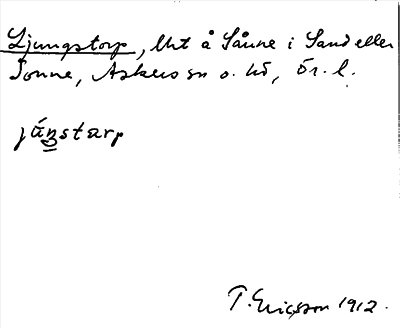 Ljungstorp, lht å Sånne i Sand eller
Sonne, Askers sn o. hd, Ör. l.
júŋstarp
T. Ericsson 1912.